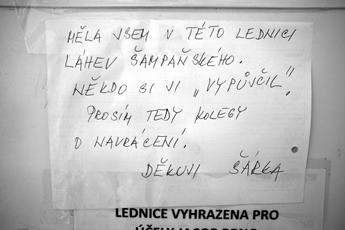 MĚLA JSEM V TÉTO LEDNICI
LÁHEV ŠAMPAŇSKÉHO.
NĚKDO SI JI „VYPŮJČIL".
PROSÍM TEDY KOLEGY
O NAVRÁCENÍ.
DĚKUJI ŠÁRKA
LEDNICE VYHRAZENA PRO
ÚČELY